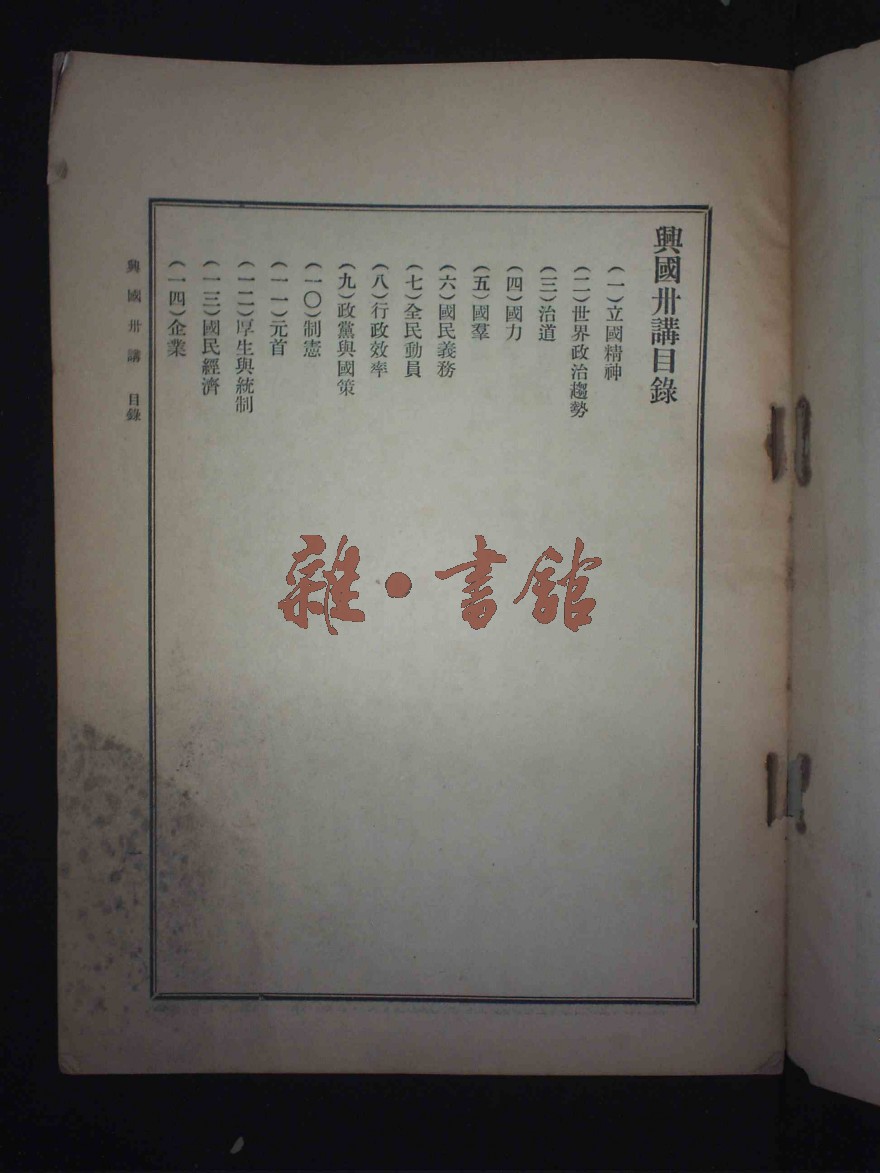 興國卅講目錄
（一）立國精神
（二）世界政治趨勢
（三）治道
（四）國力
（五）國羣
（六）國民義務
（七）全民動員
（八）行政效率
（九）政黨與國策
（一〇）制憲
（一一）元首
（一二）厚生與統制
（一三）國民經濟
（一四）企業
興國卅講 目錄
雜·書館